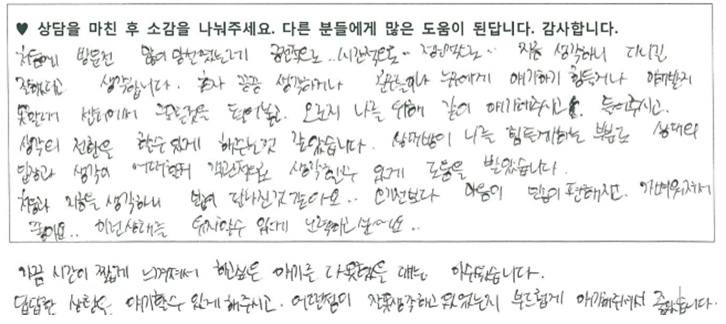 ♥ 상담을 마친 후 소감을 나눠주세요. 다른 분들에게 많은 도움이 된답니다. 감사합니다.
처음에 방문전 많이 망설였는데 금전적으로.. 시간적으로.. 정신적으로.. 지금 생각하니 다니길
잘했다고 생각합니다. 혼자 끙끙 생각하거나 누구에게 얘기하기 힘들거나 얘기하지
못할때 오로지 나를 위해 같이 얘기해주시고. 들어주시고.
생각의 전환을 할수 있게 해주는것 같았습니다. 상대방이 나를 힘들게하는 부분도 상대의
입장과 생각이 어떠한지 객관적으로 생각할수 있게 도움을 받았습니다.
처음과 지금을 생각하니 많이 달라진것 같아요.. 오기전보다 마음이 많이 편해지고. 가벼워져서
좋아요.. 이런상태를 유지할수 있게 노력하고 싶어요..
가끔 시간이 짧게 느껴져서 하고싶은 얘기를 다 못했을 때는 아쉬웠습니다.
답답한 상황을 얘기할수 있게 해주시고. 어떤점이 잘못생각하고 있었는지 부드럽게 얘기해주셔서 좋았습니다.